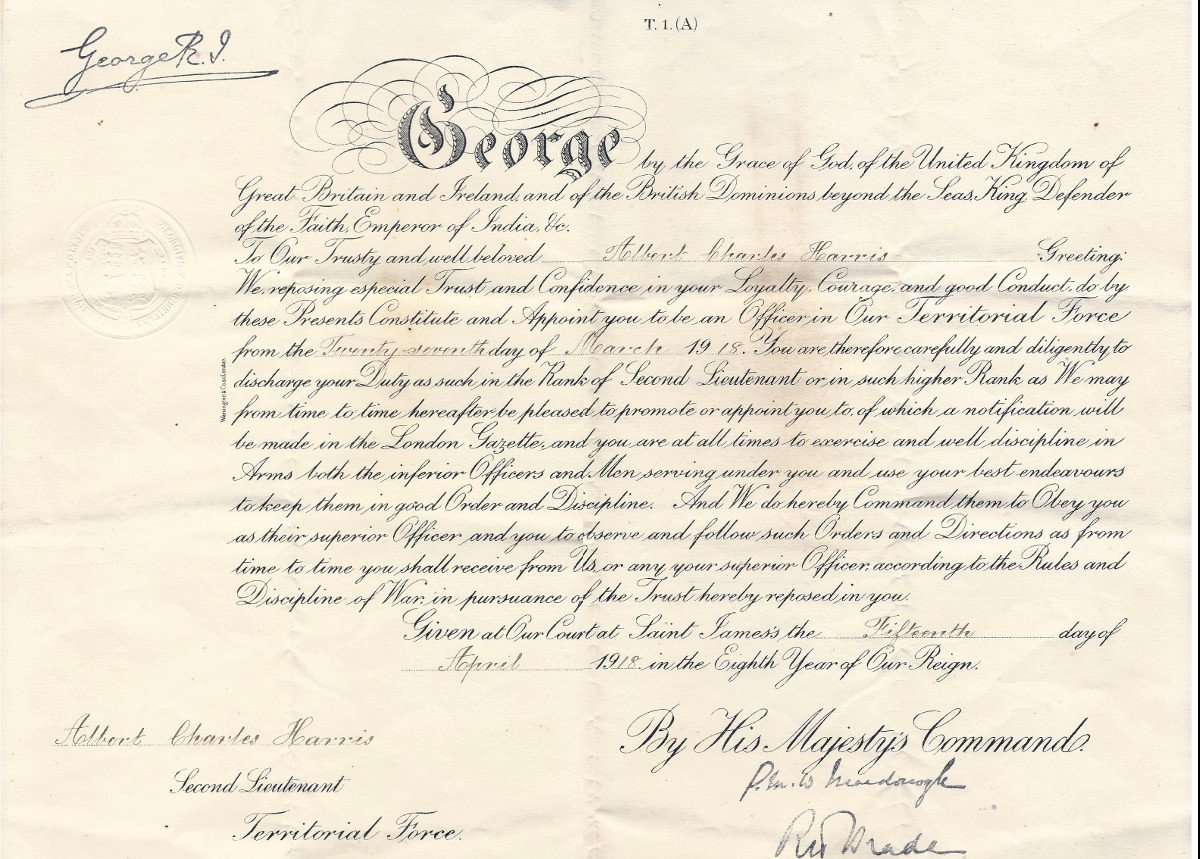 T. 1. (A)
George R.I.
George by the Grace of God, of the United Kingdom of
Great Britain and Ireland, and of the British Dominions beyond the Seas, King, Defender
of the Faith, Emperor of India, &c.
To Our Trusty and well beloved Albert Charles Harris Greeting:
We, reposing especial Trust and Confidence in your Loyalty, Courage, and good Conduct, do by
these Presents Constitute and Appoint you to be an Officer in Our Territorial Force
from the Twenty-seventh day of March 1918. You are therefore carefully and diligently to
discharge your Duty as such in the Rank of Second Lieutenant or in such higher Rank as We may
from time to time hereafter be pleased to promote or appoint you to, of which a notification will
be made in the London Gazette, and you are at all times to exercise and well discipline in
Arms both the inferior Officers and Men serving under you and use your best endeavours
to keep them in good Order and Discipline. And We do hereby Command them to Obey you
as their superior Officer, and you to observe and follow such Orders and Directions as from
time to time you shall receive from Us, or any your superior Officer, according to the Rules and
Discipline of War, in pursuance of the Trust hereby reposed in you.
Given at Our Court at Saint James's the Fifteenth day of
April 1918 in the Eighth Year of Our Reign.
By His Majesty's Command.
Albert Charles Harris
Second Lieutenant
Territorial Force.